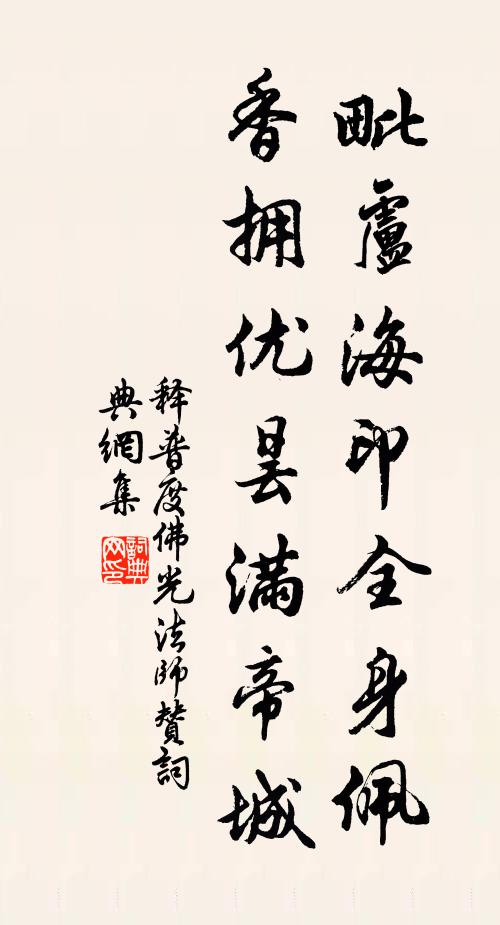 毗盧海印全身佩
香拥优昙滿帝城
释普度佛光法師贊詞
典網集
詞典网印